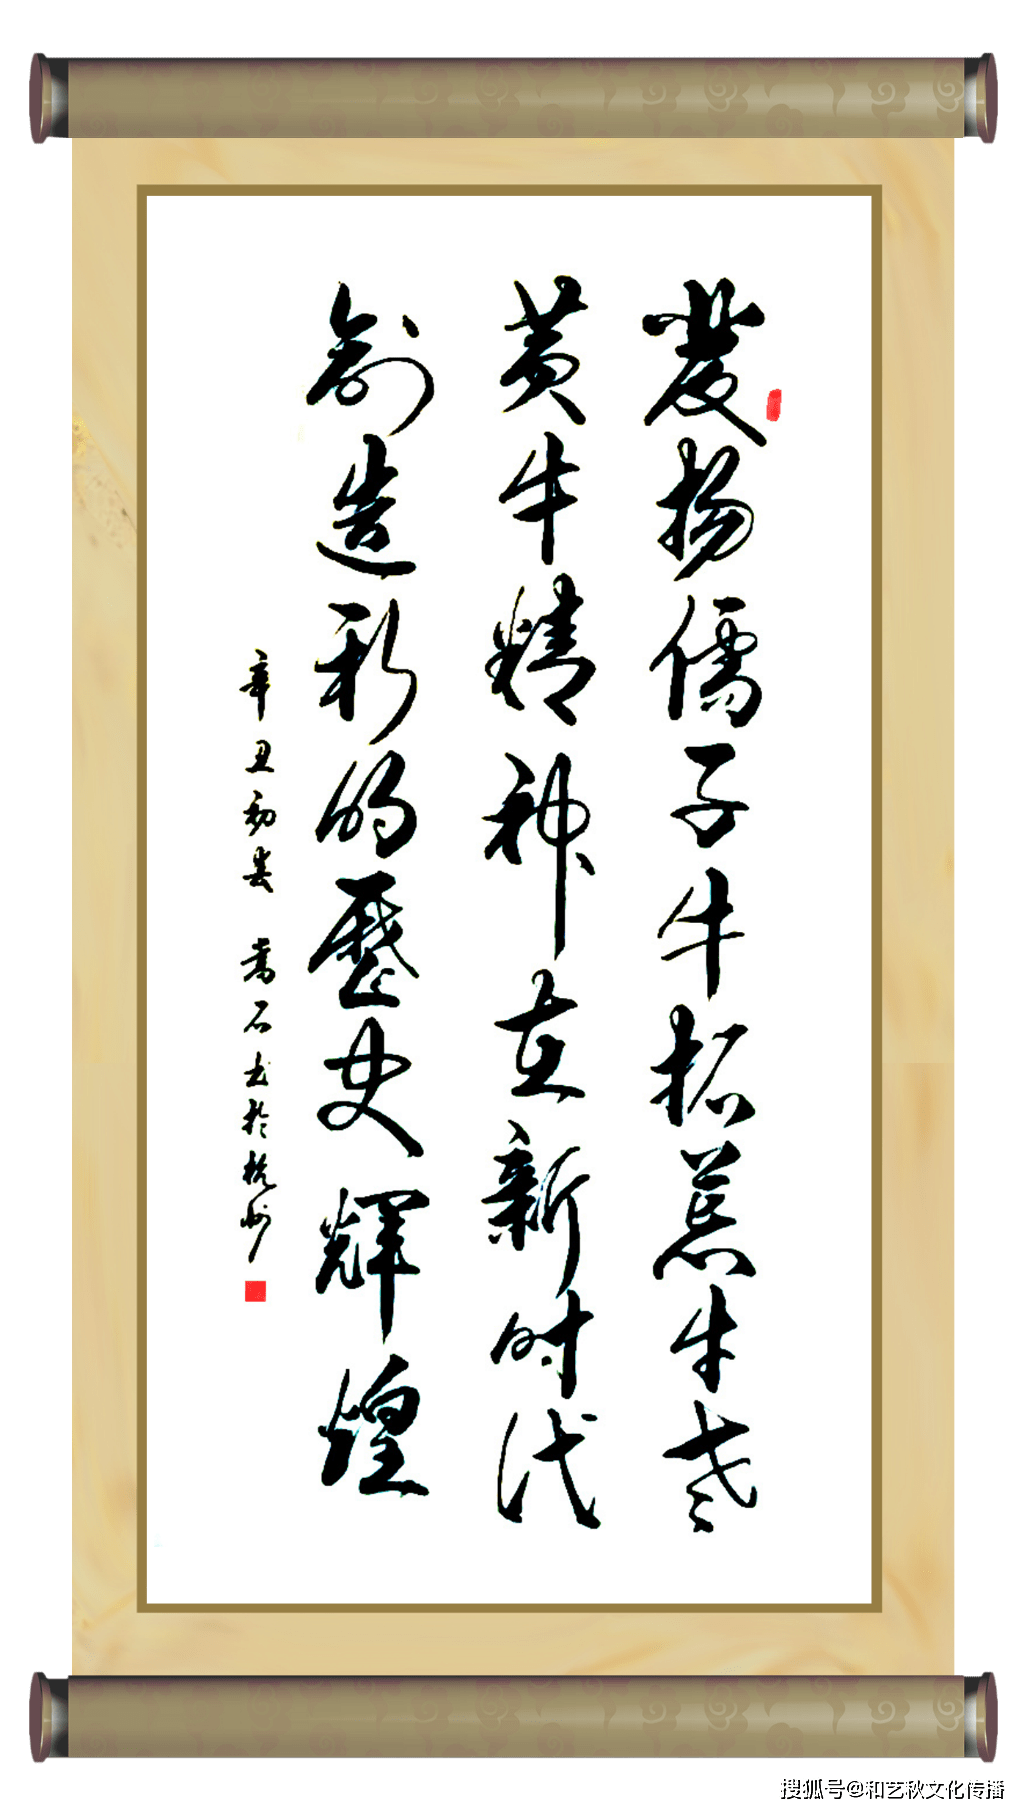 發揚儒子牛拓荒牛老
黄牛精神在新时代
創造新的歷史輝煌
辛丑初春 嵩石书於杭州
搜狐号@和艺秋文化传播